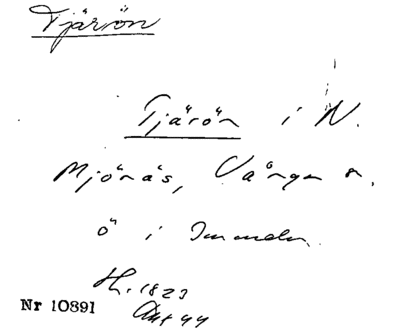 Tjärön
Tjärön i N.
Mjönäs, Vånga sn.
ö i Immeln.
Hr. 1823
Nr 10891